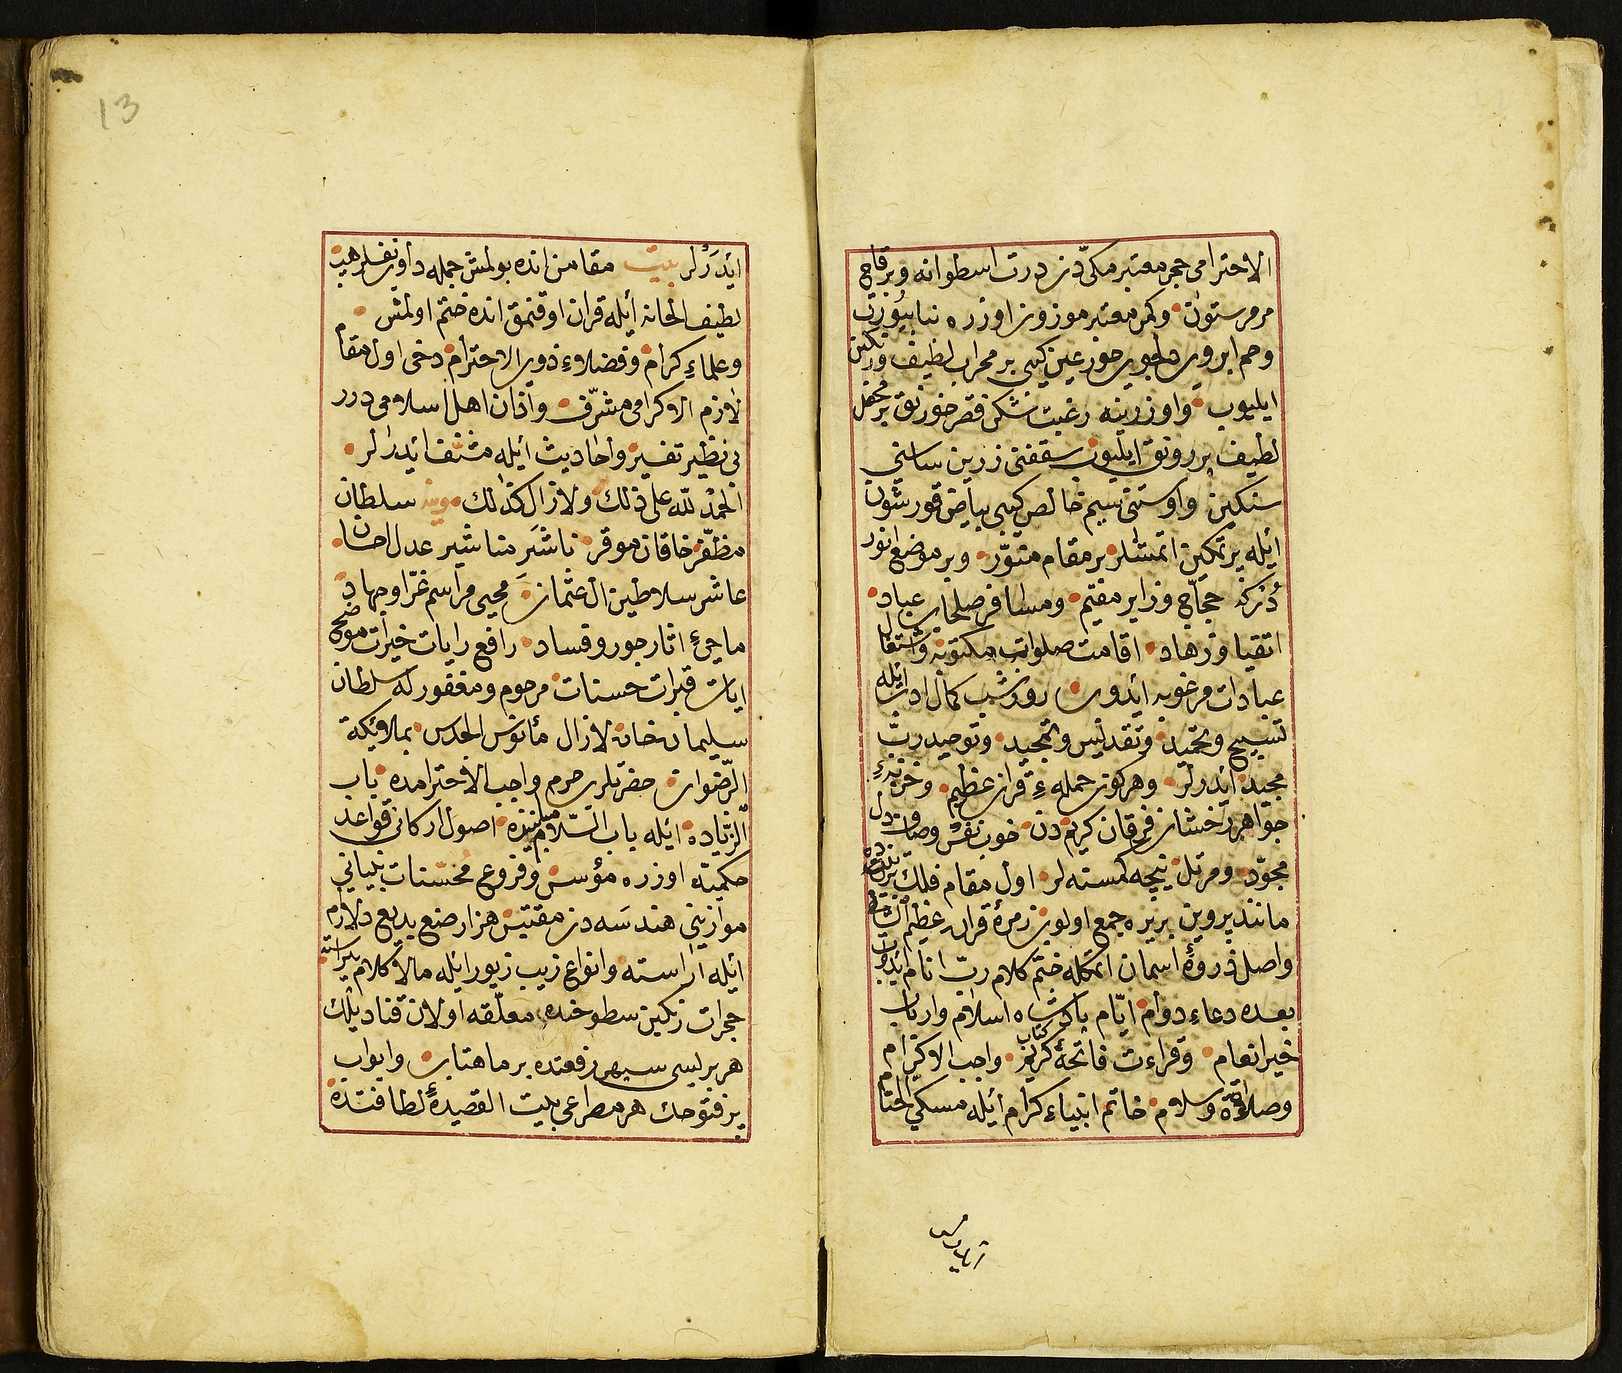 الاحترامی حجر معتبر مکّیدن درت اسطوانه و برقاچ
مرمر ستون و کمر معتبر موزون اوزره بنا بیوزب
و خم ابروی دلجوی حور عین کبی بر محراب لطیف و رنکین
ایلیوب و اوزرینه رغبت شکن قصر خورنق بر محفل
لطیف پر رونق ایلیوب سقفنی زرین ساسنی
سنکین و اوستنی سیم خالص کبی بیاض قورشون
ایله پر تمکین اتمشلر بر مقام منوّر و بر موضع انور
دُرکه حجاج و زایر مقیم و مسافر صلحای عباد
اتقیا و زهاد اقامت صلوات مکتوبه و اشتغال
عبادات مرغوبه ایدوب روز شب کمال ادب ایله
تسبیح و تحمید و تقدیس و تمجید و توحید ربّ
مجید ایدرلر و هرکون حمله ءِ قران عظیم و خزنه ءِ
جواهر رخشان فرقان کریم دن خوب نفس وصاف دل
مجوّد و مرتل نیچه کمسنه لر اول مقام فلک
مانند پروین بر یره جمع اولوب زمرۀ قران عظیم
واصل ذروۀ اسمان اتمکله ختم کلام ربّ انام ایدوب
بعده دعاء دوام ایّام پادشاه اسلام و ارباب
خیر انعام و قراءت فاتحۀ کتاب کریم واجب الاکرام
و صلاة و سلام خاتم انبیاء کرام ایله مسکّی الختام
ایدرلر
13
ایدَرْلر بیت مقامن انده بولمش جمله داودی نفلر هپ
لطیف الحانه ایله قران اوقنمق انده ختم اولمش
و علماءِ کرام و فضلاءِ ذوی الاحترام دخی اول مقام
لازم الاکرامی مشرّف و آذان اهل اسلامی درر
بی نظیر تفسیر و احادیث ایله مشنّف ایدرلر
الحمد للّه علی ذلك و لا زال کذلك سلطان
مظفّر خاقان موقر ناشر مناشیر عدل احسان
عاشر سلاطین ال عثمان محیی مراسم غزا و جهاد
ماحیءِ اثار جور و فساد رافع رایات خیرات موضح
ایات مبرات حسنات مرحوم و مغفور له سلطان
سلیمان خان لا زال مأنوس الحدس بملائکة
الرّضوان حضرتلری حرم واجب الاحترامده باب
الزّیاده ایله باب السّلام بیننده اصول ارکانی قواعد
حکمیّه اوزره مؤسس و فروع محسّنات بنیانی
موازینی هندسَه دن مقتبس هزار صنع بدیع دلارام
ایله اراسته و انواع زیب زیور ایله مالا کلام پیراسته
حجرات رنکین سطوحنده معلّقه اولان قنادیلك
هر بریسی سپهر رفعتده بر ماهتاب و ابواب
پر فتوحك هر مصراعی بیت القصیدۀ لطافتده